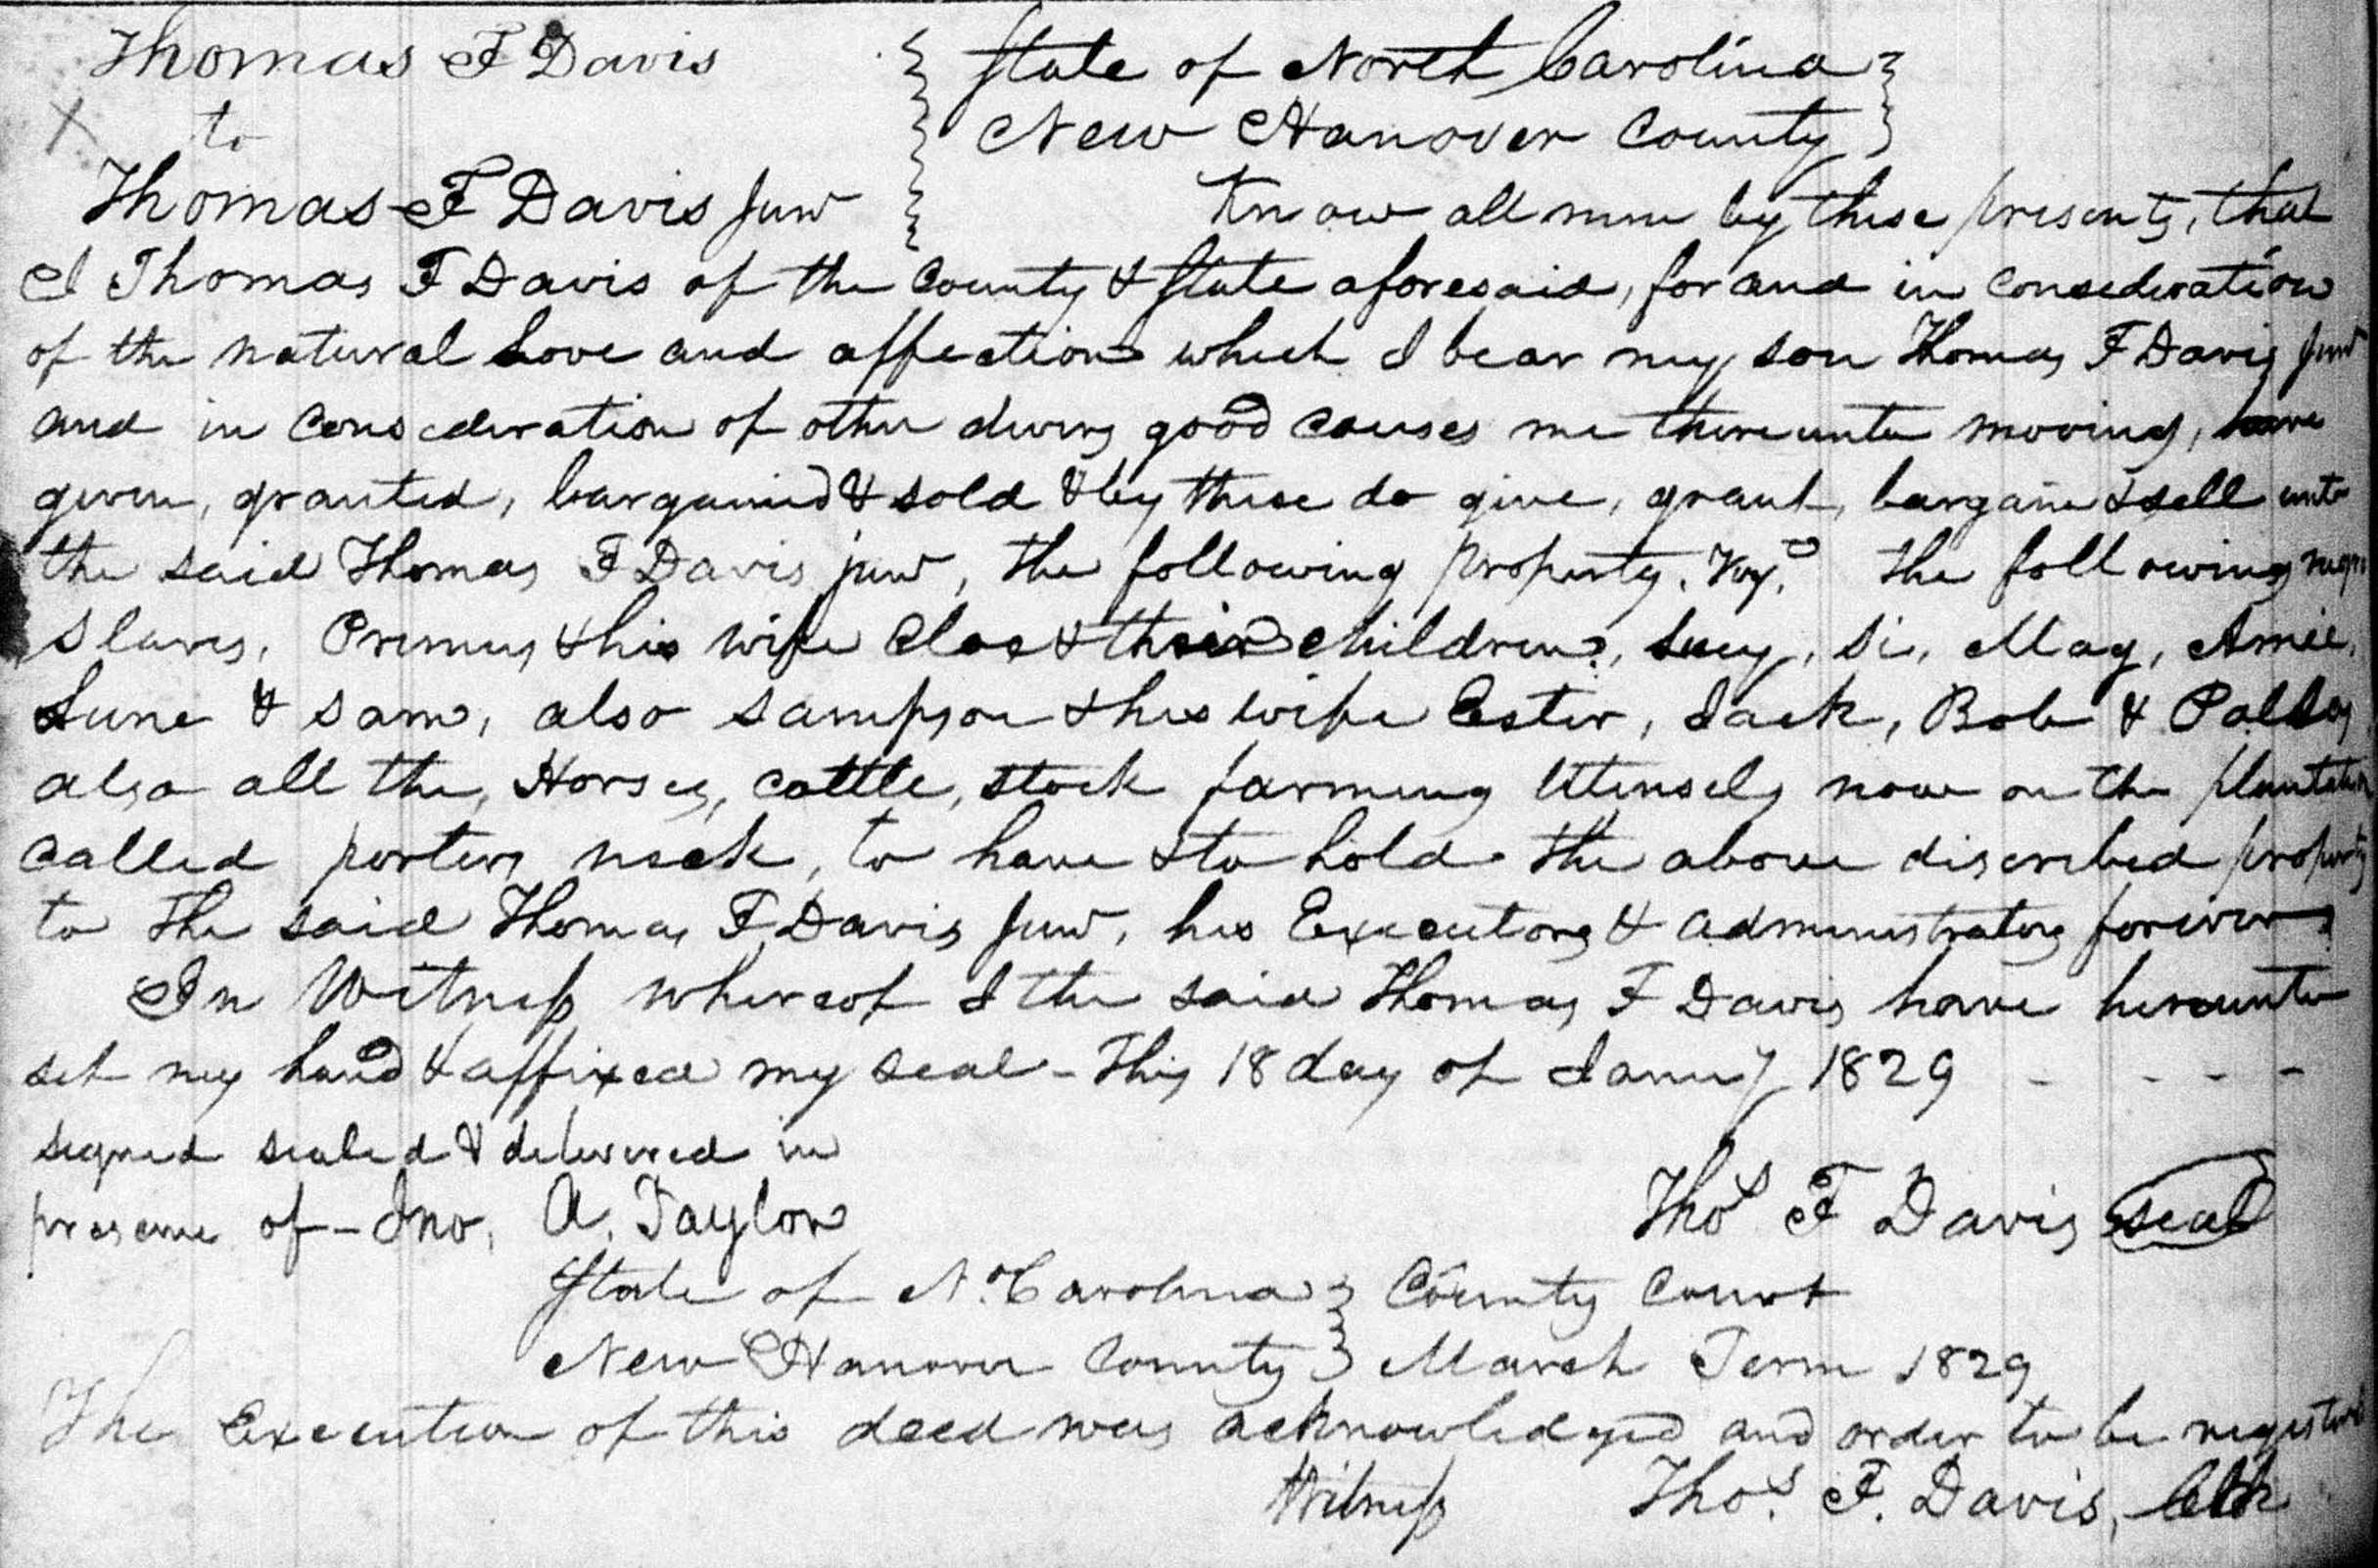 Thomas F Davis
to
Thomas F Davis Junr
State of North Carolina
New Hanover County
Know all men by these presents, that
I Thomas F Davis of the County & State aforesaid, for and in Consederation
of the natural Love and affection which I bear my son Thomas F Davis Junr
and in Consederation of other divers good causes me thereunto moving, have
given, granted, bargained & sold & by these do give, grant, bargain & sell unto
the said Thomas F Davis junr, the following property. Vizt. the following negro
Slaves, Primus & his wife Cloe & their children, Lucy, Si, Mag, Amie,
June & Sam, also Sampson & his wife Ester, Jack, Bob &
also all the, Horses, cattle, stock farming Utensels now on the plantation
called porters neck, to have & to hold the above discribed property
to the said Thomas F Davis Junr, his Executors & administrators forever
In Witness whereof I the said Thomas F Davis have hereunto
set my hand & affixed my seal - This 18 day of Januy 1829 - - - -
signed sealed & delivered in
presence of - Jno. A. Taylor
Thos F Davis seal
State of N. Carolina County Court
New Hanover County March Term 1829
The Execution of this deed was acknowledged and order to be registered
Witness Thos. F. Davis, Clk